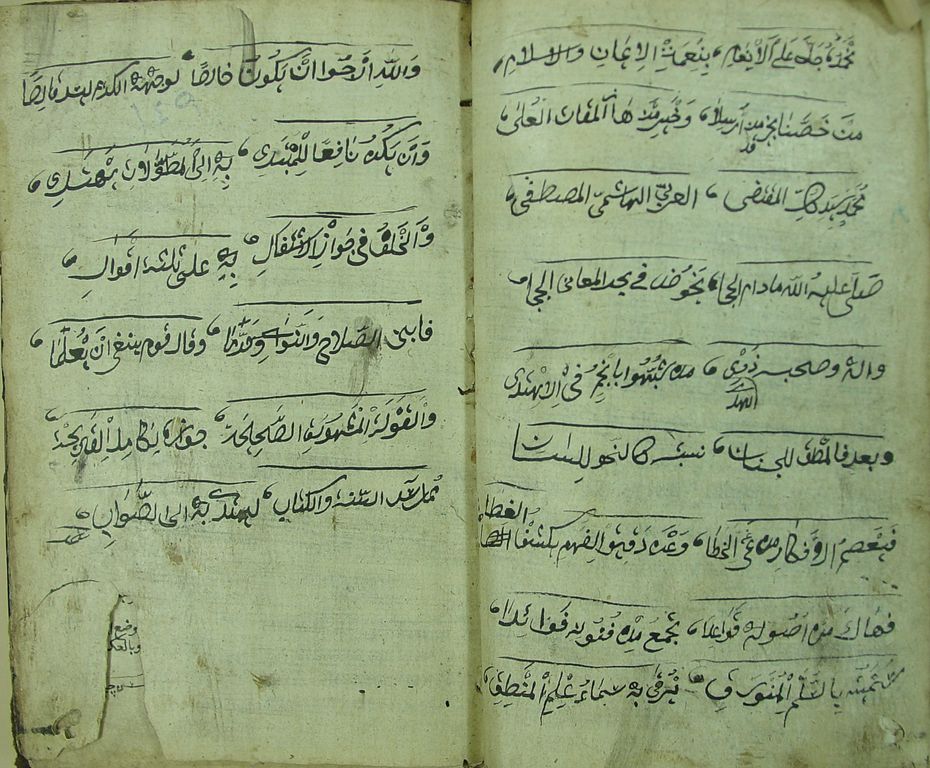 نحمده جل على الانعام ، بنعمة الايمان والاسلام
من خصنا بخير من قد ارسلا ، وخير من المقامات العلى
محمد سيد كل المقتفى ، العربي الهاشمي المصطفى
صلى عليه الله مادام الحجا ، يخوض في بحر المعاني
واله وصحبه ذوي الهدى ، من شبهوا بانجم في الاهتدى
وبعد فالمنطق للجنان ، نسبته كالنحو للسان
فيعصم الافكار عن غي الخطا ، وعن دقيق الفهم يكشف الغطا
فهاك من اصوله قواعدا ، تجمع من فنونه فوائدا
سميته بالسلم المنورق ، يرقى به سماء علم المنطق
والله ارجوا ان يكون خالصا ، لوجهه الكريم ليس قالصا
وان يكون نافعا للمبتدي ، به الى المطولات يهتدي
والخلف في جواز الاشتغال ، به على ثلثة اقوال
فابن الصلاح والنواوي حرما ، وقال قوم ينبغي ان يعلما
والقولة المشهورة الصحيحة ، جوازه لكامل القريحة
ممارس السنة والكتاب ، ليهتدي به الى الصواب
وضع
وبالعك